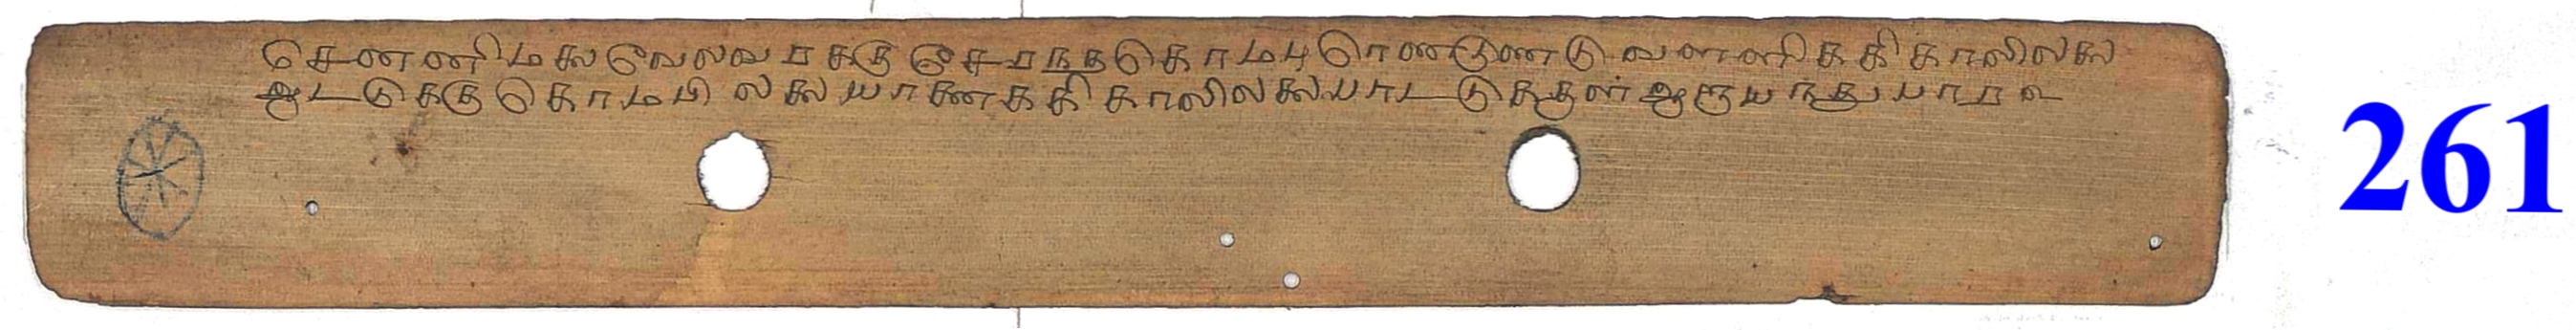 செனனிமலை வெலவரககு சேரநதகொமபு ரெணடுணடு வளளிககி காலிலலை
ஆடடுககு கொமபிலலை யானைககி காலிலலை பாடடுககுள ஆரூயநது பாரவ
261